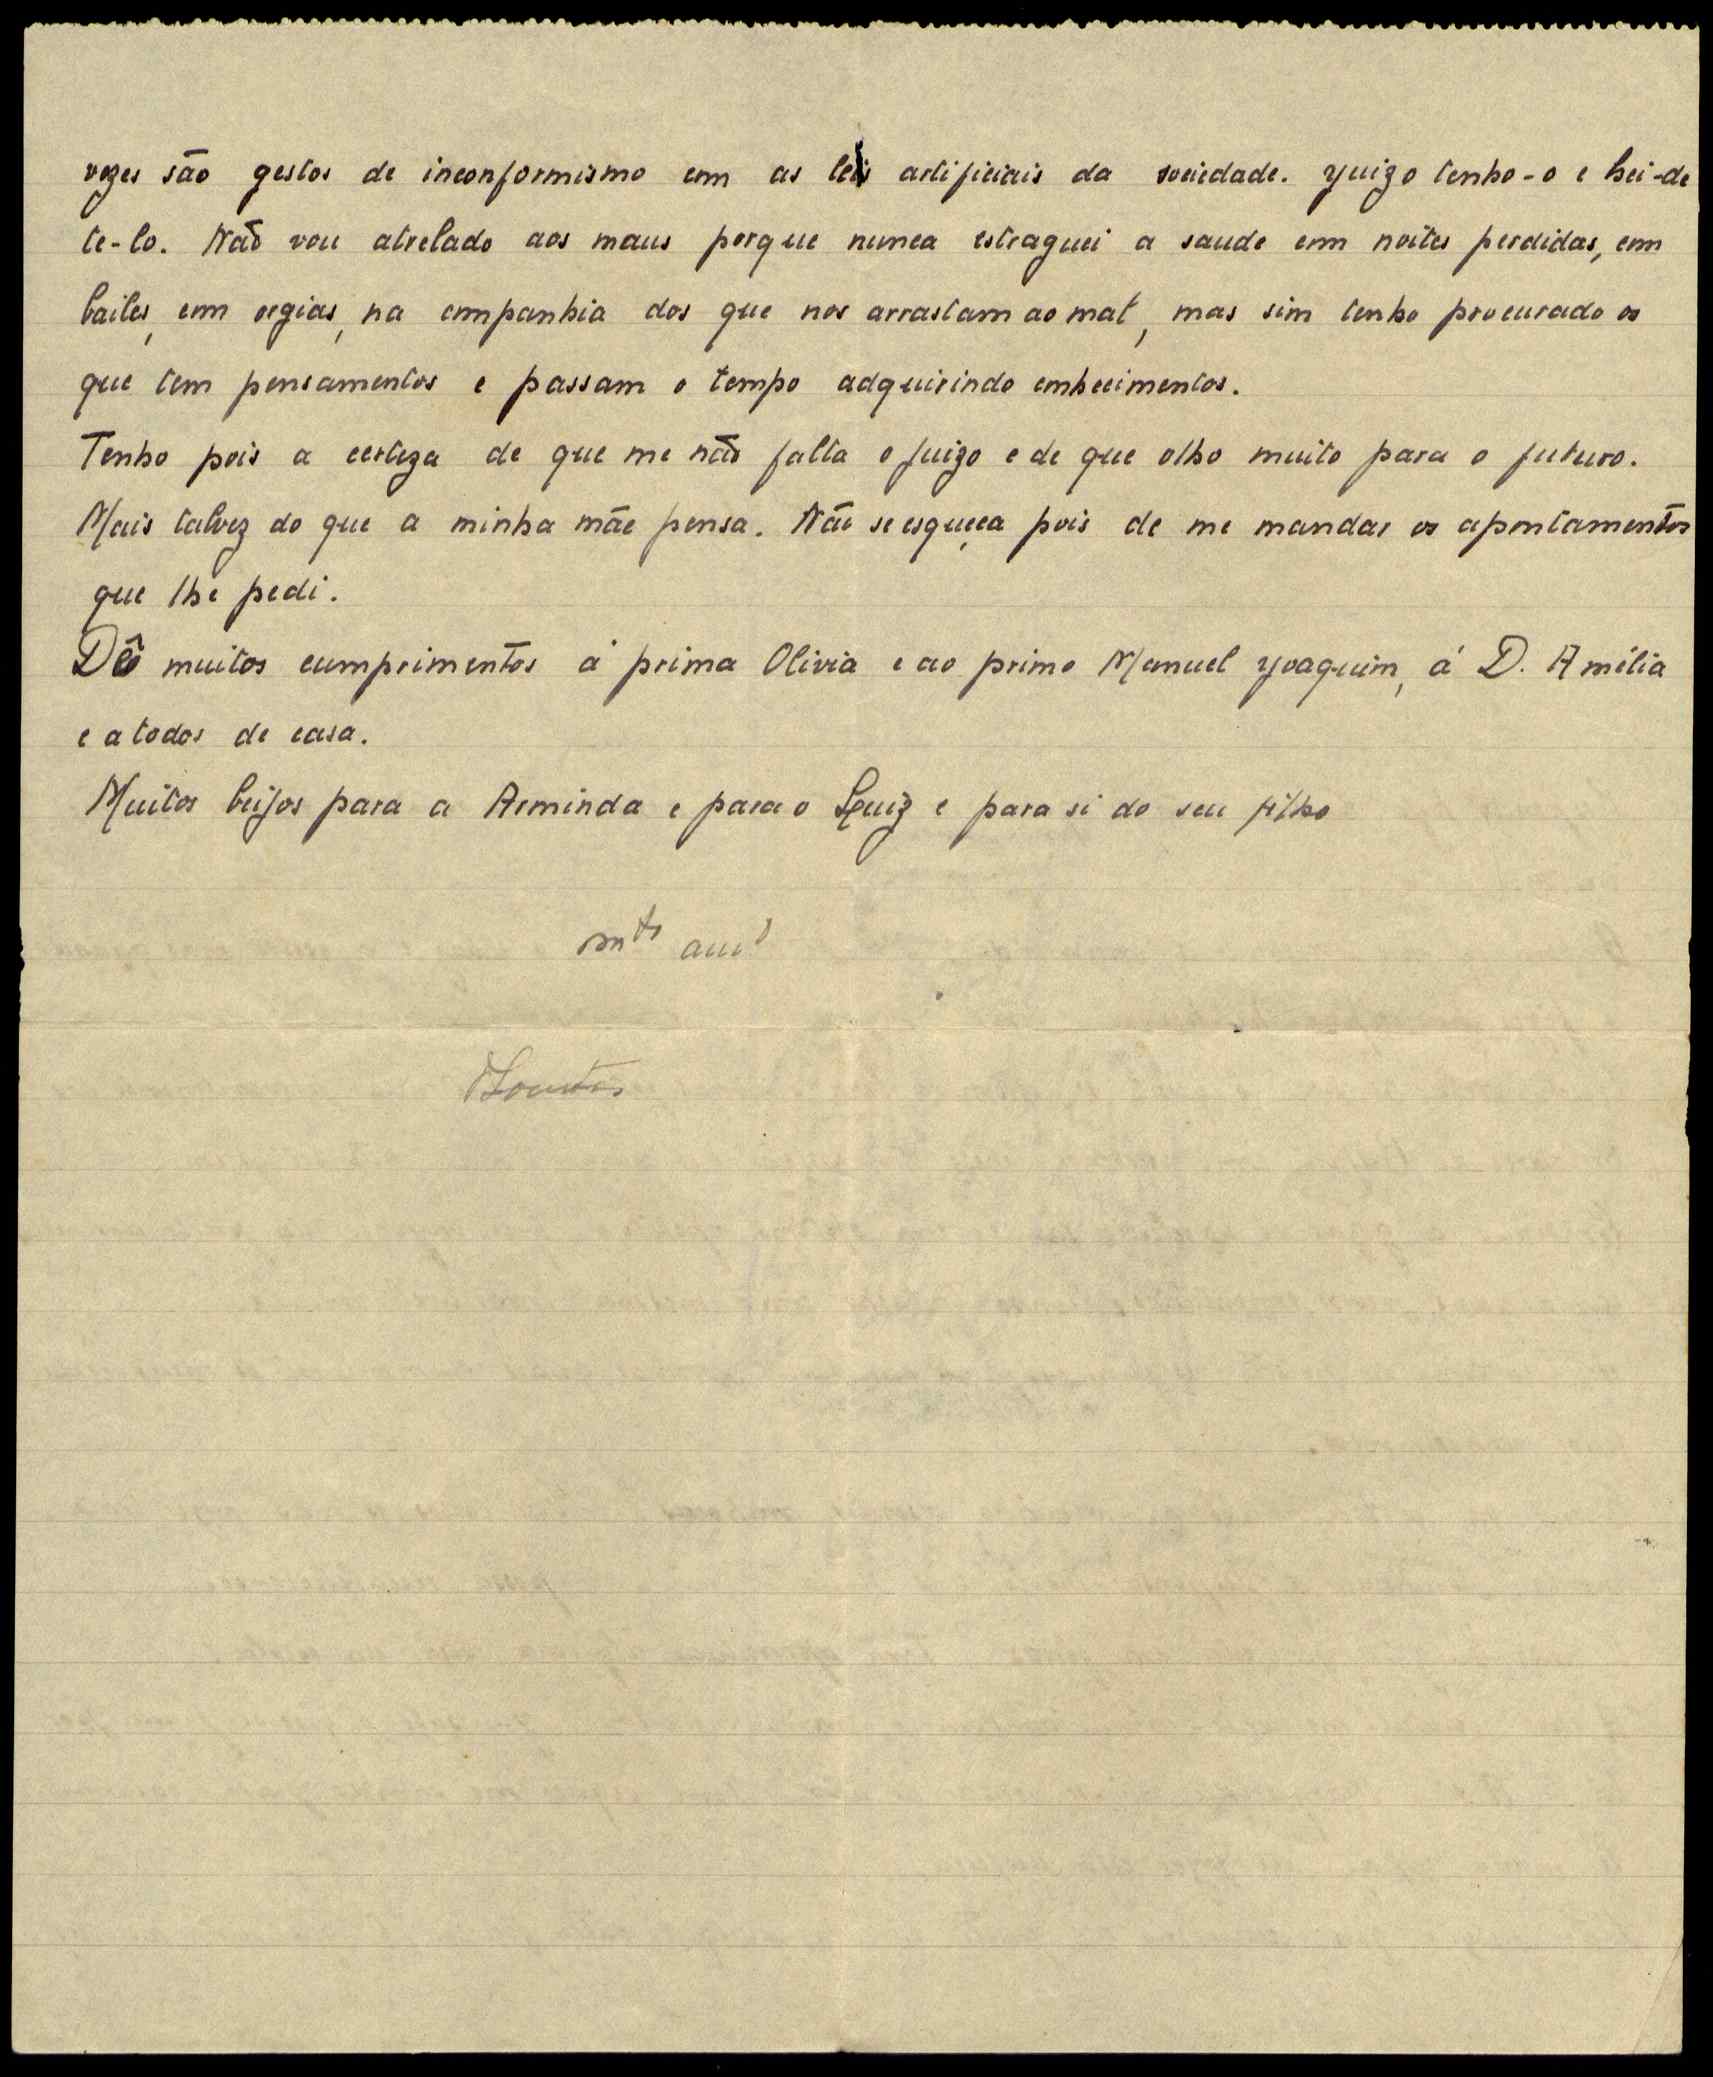 vezes são gestos de inconformismo com as leis artificiais da sociedade. Juizo tenho-o e hei-de
te-lo. Não vou atrelado aos maus porque nunca estraguei a saude em noites perdidas, em
bailes, em orgias, na companhia dos que nos arrastam ao mal, mas sim tenho procurado os
que tem pensamentos e passam o tempo adquirindo conhecimentos.
Tenho pois a certeza de que me não falta o juizo e de que olho muito para o futuro.
Mais talvez do que a minha mãe pensa. Não se esqueça pois de me mandar os apontamentos
que lhe pedi.
Dê muitos cumprimentos á prima Olivia e ao primo Manuel Joaquim, á D. Amélia
e a todos de casa.
Muitos beijos para a Arminda e para o Luiz e para si do seu filho
mto amo